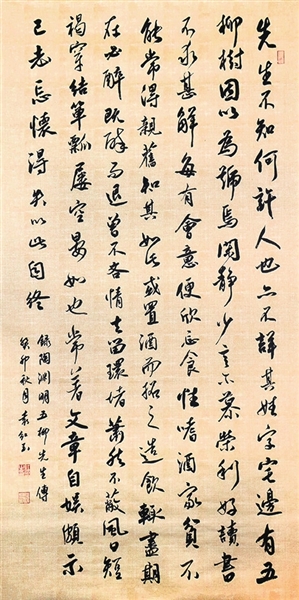 先生不知何許人也亦不詳其姓字宅邊有五
柳樹因以為號焉閑靜少言不慕榮利好讀書
不求甚解每有會意便欣忘食性嗜酒家貧不
能常得親舊知其如此或置酒而招之造飲輒盡期
在必醉既醉而退曾不吝情去留環堵蕭然不蔽風日短
褐穿結簞瓢屢空晏如也常著文章自娛頗示
己志忘懷得失以此自終
錄陶淵明五柳先生傳
癸卯秋月袁